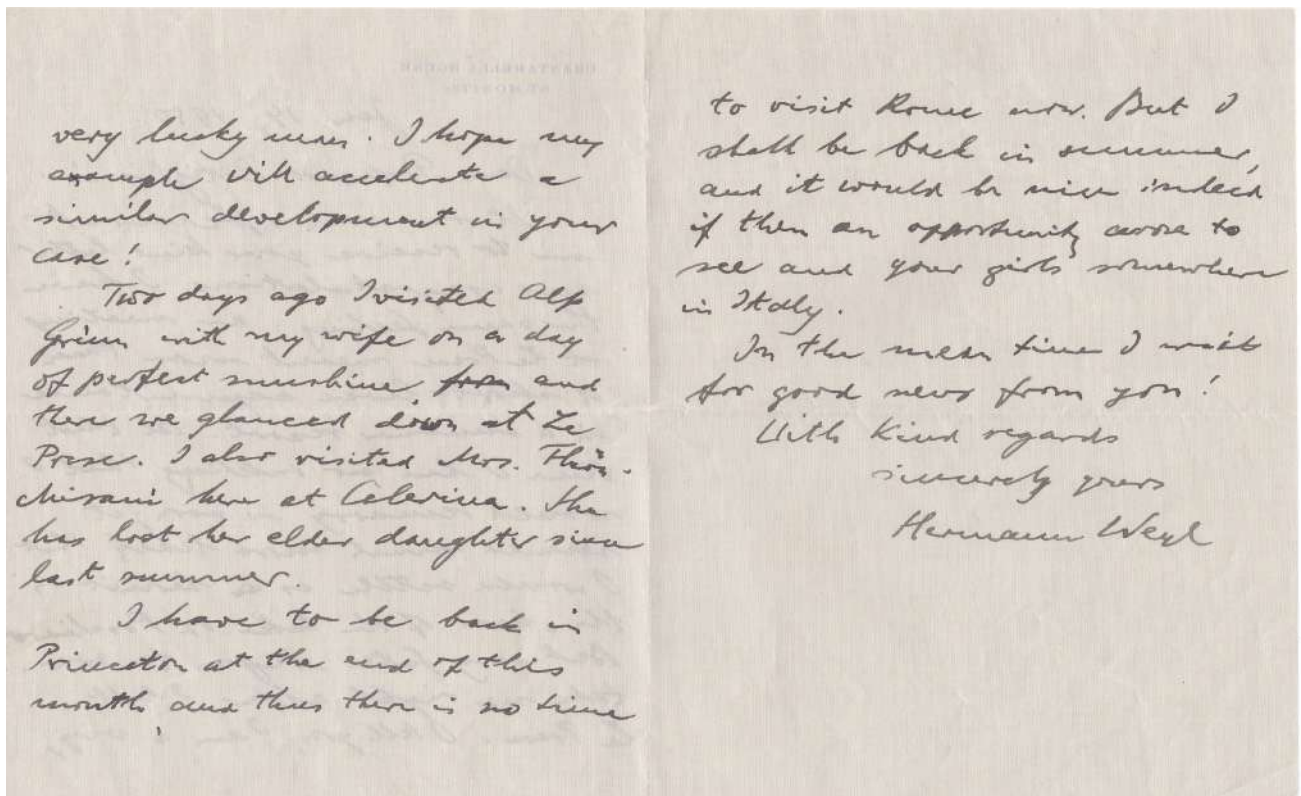 very lucky man. I hope my
example will accelerate a
similar development in your
case!
Two days ago I visited Alp
Grüm with my wife on a day
of perfect sunshine and
there we glanced down at Le
Prese. I also visited Mrs.
here at Celerina. She
has lost her elder daughter since
last summer.
I have to be back in
Princeton at the end of this
month and thus there is no time
to visit Rome now. But I
shall be back in summer,
and it would be nice indeed
if then an opportunity arose to
see and your girls somewhere
in Italy.
In the mean time I wait
for good news from you!
With kind regards
sincerely yours
Hermann Weyl